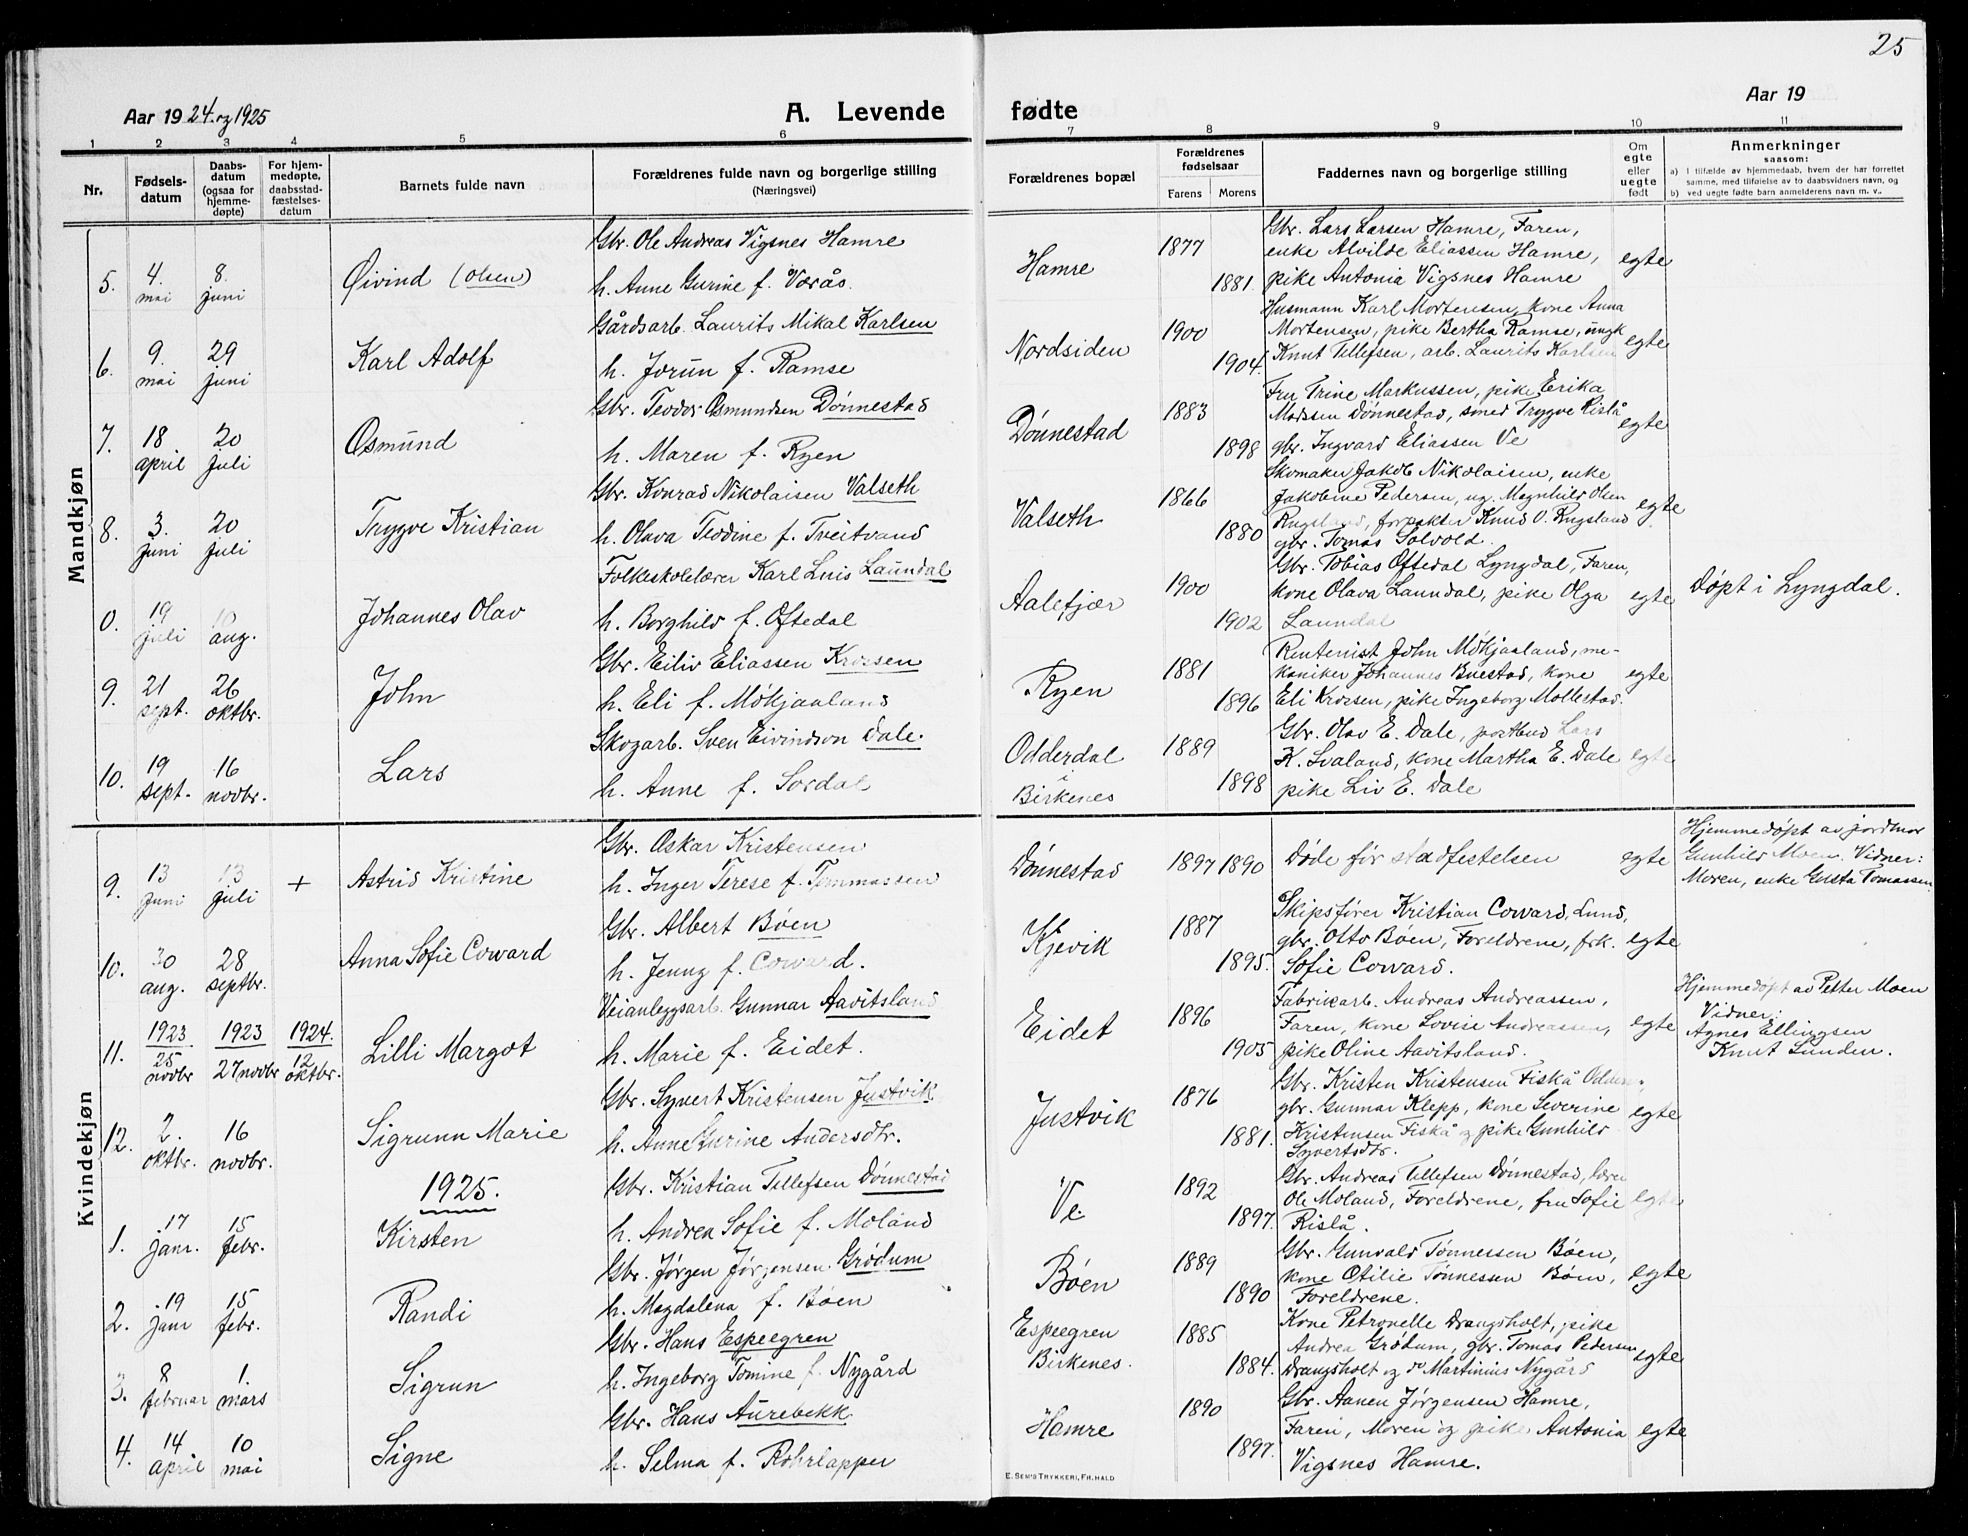 25
Aar 1924 og 1925
A. Levende fødte
Aar 19
1 2 3 4 5 6 7 8 9 10 11
Nr.
Fødsels-
datum
Daabs-
datum
(ogsaa for
hjemme-
døpte)
For hjem-
medøpte,
daabsstad-
fæstelses-
datum
Barnets fulde navn
Forældrenes fulde navn og borgerlige stilling
(Næringsvei)
Forældrenes bopæl
Forældrenes
fødselsaar
Farens Morens
Faddernes navn og borgerlige stilling
Om
egte
eller
uegte
født
Anmerkninger
saasom:
a) i tilfælde av hjemmedaab, hvem der har forrettet
samme, med tilføielse av to daabsvidners navn, og
b) ved uegte fødte barn anmelderens navn m. v..
Mandkjøn
5. 4. mai 8. juni
Øivind (Olsen)
Gbr. Ole Andreas Vigsnes Hamre
h. Anne Gurine f. Værås.
Hamre
1877 1881.
Gbr. Lars Larsen Hamre, Faren,
enke Alvilde Eliassen Hamre,
pike Antonia Vigsnes Hamre
egte
6. 9. mai 29 juni
Karl Adolf
Gårdsarb. Laurits Mikal Karlsen
h. Jorun f. Ramse
Nordsiden
1900 1904.
Husmann Karl Mortensen, kone Anna
Mortensen, pike Bertha Ramse, ungk
Knut Tellefsen, arb. Laurits Karlsen
egte
7. 18 april 20 juli
Osmund
Gbr. Teodor Osmundsen Dønnestad
h. Maren f. Ryen
Dønnestad
1883 1898
Fru Trine Markussen, pike Erika
Madsen Dønnestad, smed Trygve Rislå
gbr. Ingvard Eliassen Ve
egte
8. 3. juni 20 juli
Trygve Kristian
Gbr. Konrad Nikolaisen Valseth
h. Olava Teodine f. Treitvand
Valseth
1866 1880
Skomaker Jakob Nikolaisen, enke
Jakobine Pedersen, ug. Magnhild Olsen
Rugsland, forpakter Knud O. Rugsland
gbr. Tomas Solvold.
egte
0. 19 juli 10 aug.
Johannes Olav
Folkeskolelærer Karl Luis Laundal
h. Borghild f. Oftedal
Aalefjær
1900 1902
Gbr. Tobias Oftedal Lyngdal, Faren,
kone Olava Laundal, pike Olga
Laundal
egte
Døpt i Lyngdal.
9. 21 sept. 26 oktbr.
John
Gbr. Eiliv Eliassen Krossen
h. Eli f. Møkjaaland
Ryen
1881 1896
Rentenist John Møkjaaland, me-
kaniker Johannes Buestad, kone
Eli Krossen, pike Ingeborg Mollestad.
egte
10. 19 sept. 16 novbr.
Lars
Skogarb. Sven Eivindson Dale.
h. Anne f. Sordal
Odderdal
i
Birkenes
1889 1898
Gbr. Olav E. Dale, postbud Lars
K. Svaland, kone Martha E. Dale
pike Liv E. Dale
egte
Kvindekjøn
9. 13 juni 13 juli +
Astrid Kristine
Gbr. Oskar Kristensen
h. Inger Terese f. Tommassen
Dønnestad
1897 1890
Døde før stadfestelsen
egte
Hjemmedøpt av jordmor
Gunhild Moen. Vidner:
Moren, enke Gusta Tomassen
10. 30 aug. 28 septbr.
Anna Sofie Coward
Gbr. Albert Bøen
h. Jenny f. Coward.
Kjevik
1887 1895.
Skipsfører Kristian Coward, Lund,
gbr. Otto Bøen, Foreldrene, frk.
Sofie Coward.
egte
11. 1923 25 novbr 1923 27 novbr 1924. 12 oktbr.
Lilli Margot
Veianleggsarb. Gunnar Aavitsland
h. Marie f. Eidet.
Eidet
1896 1905
Fabrikarb. Andreas Andreassen,
Faren, kone Lovise Andreassen,
pike Oline Aavitsland.
egte
Hjemmedøpt av Petter Moen
Vidner:
Agnes Ellingsen
Knut Lunden.
12. 2. oktbr. 16 novbr.
Sigrunn Marie
Gbr. Syvert Kristensen Justvik
h. Anne Gurine Andersdtr.
Justvik
1876 1881.
Gbr. Kristen Kristensen Fiskå Oddernes,
gbr. Gunnar Klepp, kone Severine
Kristensen Fiskå og pike Gunhild
Syvertsdtr.
egte
1925.
1. 17 janr. 15 febr.
Kirsten
Gbr. Kristian Tellefsen Dønnestad
h. Andrea Sofie f. Moland
Ve
1892 1897.
Gbr. Andreas Tellefsen Dønnestad, lærer
Ole Moland, Foreldrene, fru Sofie
Rislå.
egte
2. 19 janr 15 febr.
Randi
Gbr. Jørgen Jørgensen Grødum
h. Magdalena f. Bøen
Bøen
1889 1890
Gbr. Gunvald Tønnessen Bøen,
kone Otilie Tønnessen Bøen,
Foreldrene.
egte
3. 8 februar 1. mars
Sigrun
Gbr. Hans Espeegren
h. Ingeborg Tomine f. Nygård
Espeegren
Birkenes.
1885 1884.
Kone Petronelle Drangsholt, pike
Andrea Grødum, gbr. Tomas Pedersen
Drangsholt og do Martinius Nygård
egte
4. 14 april 10 mai
Signe
Gbr. Hans Aurebekk
h. Selma f. Rohrlapper
Hamre
1890 1897.
Gbr. Aanen Jørgensen Hamre,
Faren, Moren og pike Antonia
Vigsnes Hamre.
egte
E. SEM'S TRYKKERI, FR.HALD